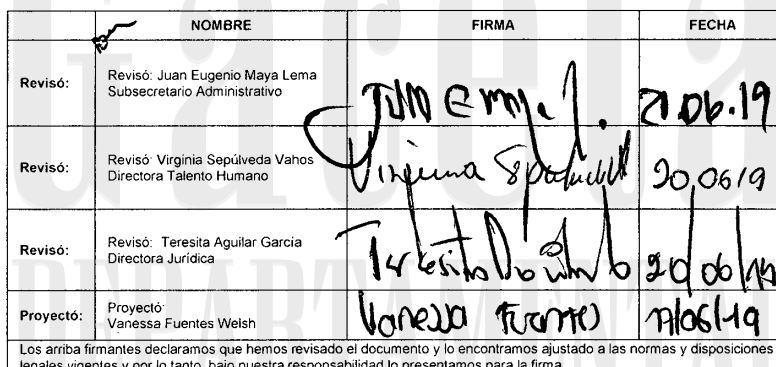 NOMBRE FIRMA FECHA
Revisó: Revisó: Juan Eugenio Maya Lema
Subsecretario Administrativo
Juan E Maya L. 21.06.19
Revisó: Revisó: Virginia Sepúlveda Vahos
Directora Talento Humano
Virginia Sepúlveda 20,06/9
Revisó: Revisó: Teresita Aguilar García
Directora Jurídica
Teresita 20/06/19
Proyectó: Proyectó:
Vanessa Fuentes Welsh
Vanessa Fuentes 17/06/19
Los arriba firmantes declaramos que hemos revisado el documento y lo encontramos ajustado a las normas y disposiciones
legales vigentes y por lo tanto, bajo nuestra responsabilidad lo presentamos para la firma.
Gaceta
DEPARTAMENTAL